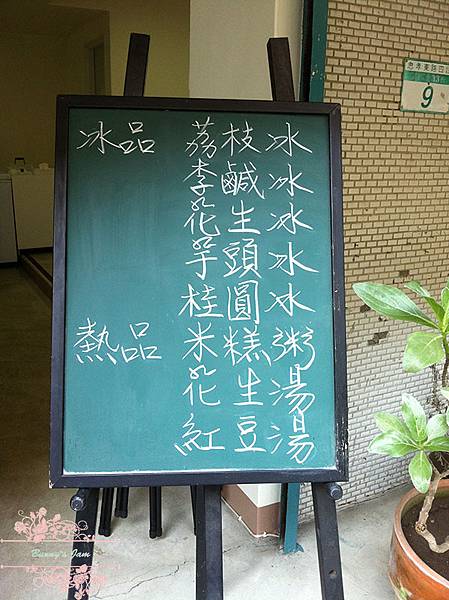 冰品 荔枝冰
李鹹冰
花生冰
芋頭冰
桂圓冰
熱品 米糕粥
花生湯
紅豆湯
忠孝東路四段
9
Bunny's Jam